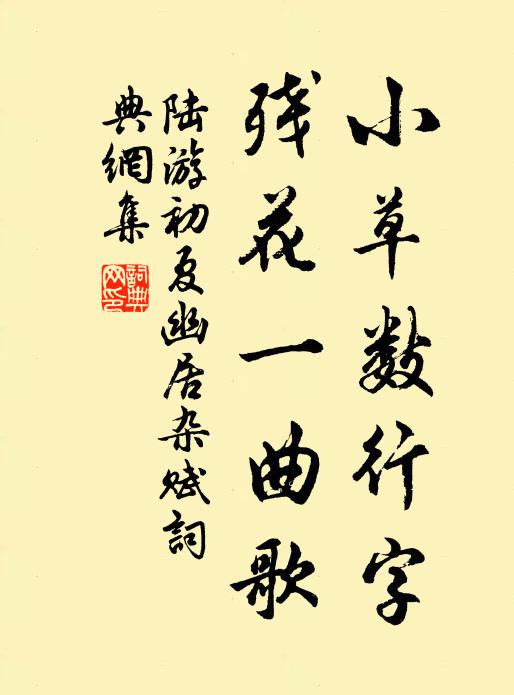 小草数行字
残花一曲歌
陆游初夏幽居杂赋詞
典網集
詞典网印